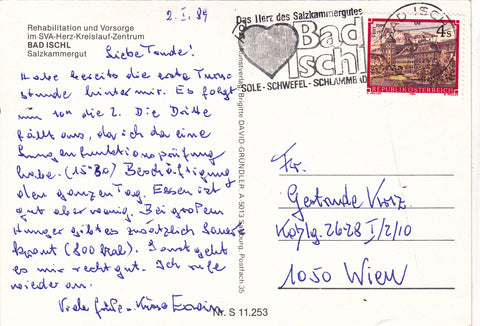 Rehabilitation und Vorsorge
im SVA-Herz-Kreislauf-Zentrum
BAD ISCHL
Salzkammergut
2. I. 89
Liebe Tande!
Habe bereits die erste Turn
stunde hinter mir. Es folgt
nur von die 2. Die Dritte
fällt aus, da ich da eine
Lungenfunktionsprüfung
habe. (15-80) Beschäftigung
den ganzen Tag. Essen ist
gut aber wenig. Bei großem
Hunger gibt es zusätzlich Sauer
kraut (800 kcal). Sonst geht
es mir recht gut. Ich rufe
wieder an.
Viele Grüße - Küsse Erwin
Kunstverlag Brigitte DAVID-GRÜNDLER A 5013 Salzburg, Postfach 35
Nr. S 11.253
Das Herz des Salzkammergutes
Bad
Ischl
SOLE - SCHWEFEL - SCHLAMMBAD
BAD ISCHL
4 S
REPUBLIK ÖSTERREICH
Fr.
Gertrude
26-28 I/2/10
1050 Wien